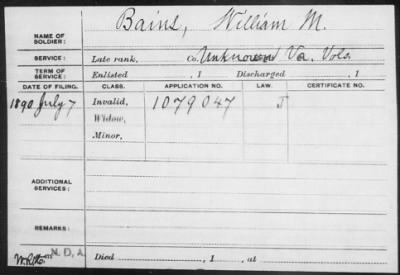 NAME OF SOLDIER: Bains, William M.
SERVICE: Late rank, Co. Unknown Va. Vols.
TERM OF SERVICE: Enlisted , 1 Discharged , 1
DATE OF FILING. CLASS. APPLICATION NO. LAW. CERTIFICATE NO.
1890 July 7 Invalid, 1079047 J
Widow,
Minor,
ADDITIONAL SERVICES:
REMARKS:
N. D. A.
Died , 1 , at